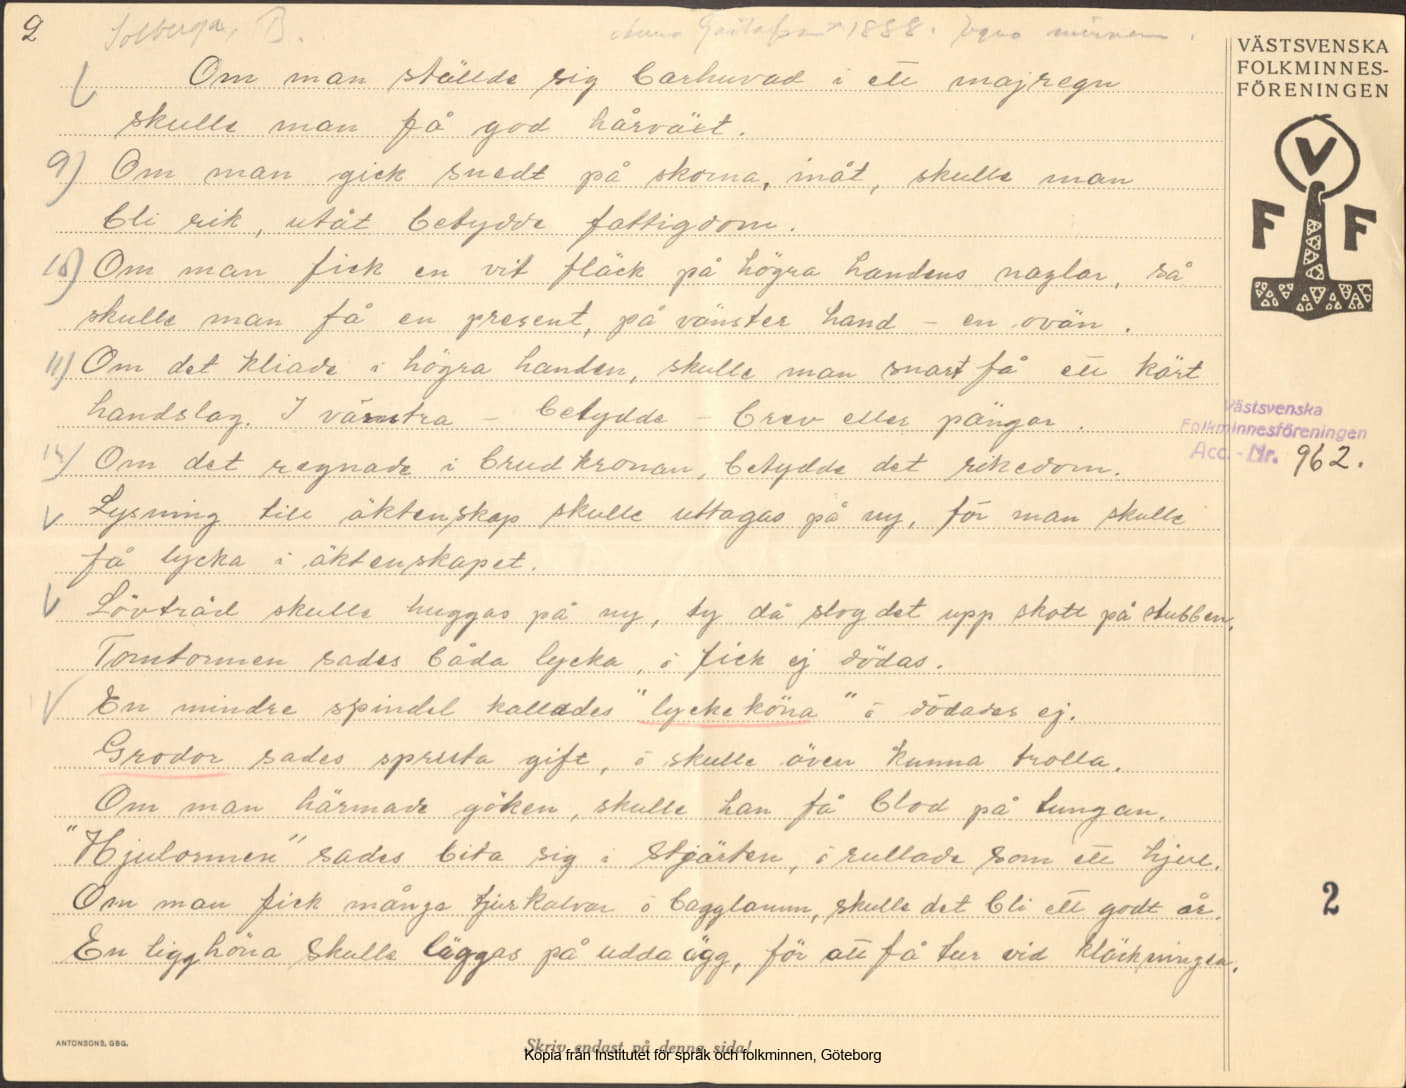 2
Solberga, B.
Anna Gustafsson 1888. Egna minnen.
VÄSTSVENSKA
FOLKMINNES-
FÖRENINGEN
V
F F
Om man ställde sig barhuvad i ett majregn
skulle man få god hårväxt.
9) Om man gick snedt på skorna, inåt, skulle man
bli rik, utåt betydde fattigdom.
10) Om man fick en vit fläck på högra handens naglar, så
skulle man få en present, på vänster hand – en ovän.
11) Om det kliade i högra handen, skulle man snart få ett kärt
handslag. I vänstra – betydde – brev eller pängar.
12) Om det regnade i brudkronan, betydde det rikedom.
Lysning till äktenskap skulle uttagas på ny, för man skulle
få lycka i äktenskapet.
Lövträd skulle huggas på ny, ty då slog det upp skott på stubben.
Tomtormen sades båda lycka, o fick ej dödas.
En mindre spindel kallades "lyckeköna" o dödades ej.
Grodor sades spruta gift, o skulle även kunna trolla.
Om man härmade göken, skulle han få blod på tungan.
"Hjulormen" sades bita sig i stjärten, o rullade som ett hjul.
Om man fick många tjurkalvar o bagglamm, skulle det bli ett godt år.
En ligghöna skulle läggas på udda ägg, för att få tur vid kläckningen.
Västsvenska
Folkminnesföreningen
Acc. - Nr. 962.
2
ANTONSONS, GBG.
Skriv endast på denna sida!
Kopia från Institutet för språk och folkminnen, Göteborg